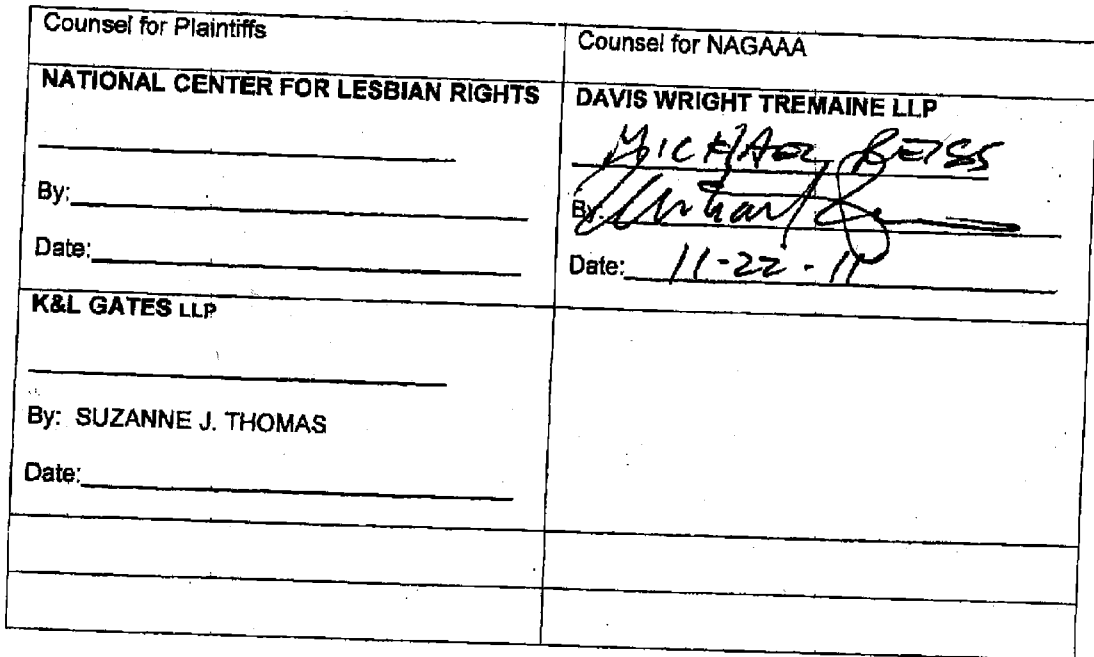 Counsel for Plaintiffs
Counsel for NAGAAA
NATIONAL CENTER FOR LESBIAN RIGHTS
By:
Date:
DAVIS WRIGHT TREMAINE LLP
MICHAEL REISS
By:
Date: 11-22-11
K&L GATES LLP
By: SUZANNE J. THOMAS
Date: